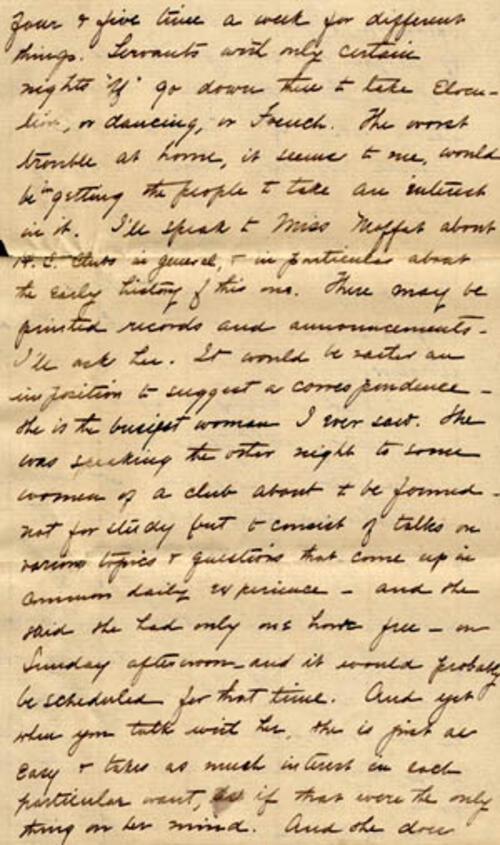 four & five time a week for different
things. Servants with only certain
nights "off" go down there to take Elocu-
tion, or dancing, or French. The worst
trouble at home, it seems to me, would
be in getting the people to take an interest
in it. I'll speak to Miss Moffat about
Clubs in general, & in particular about
the early history of this one. There may be
printed records and announcements -
I'll ask her. It would be rather an
imposition to suggest a correspondence -
she is the busiest woman I ever saw. She
was speaking the other night to some
women of a club about to be formed -
not for study but to consist of talks on
various topics & questions that come up in
common daily experience - and she
said she had only one hour free - on
Sunday afternoon - and it would probably
be scheduled for that time. And yet
when you talk with her, she is just as
easy & takes as much interest in each
particular want, as if that were the only
thing on her mind. And she does